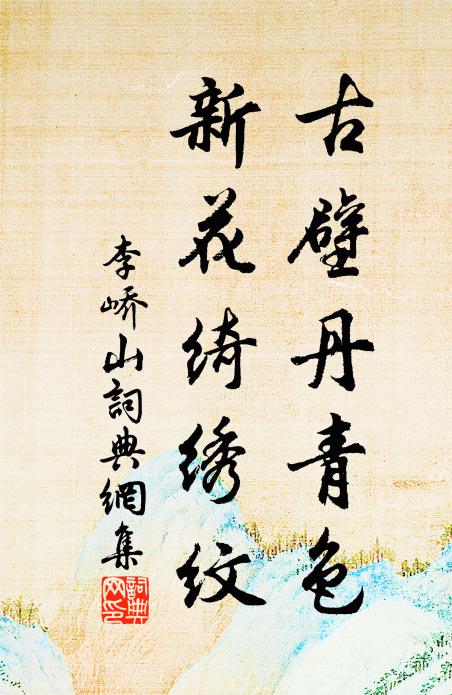 古壁丹青色
新花绮绣纹
李峤山詞典網集
詞典
网印